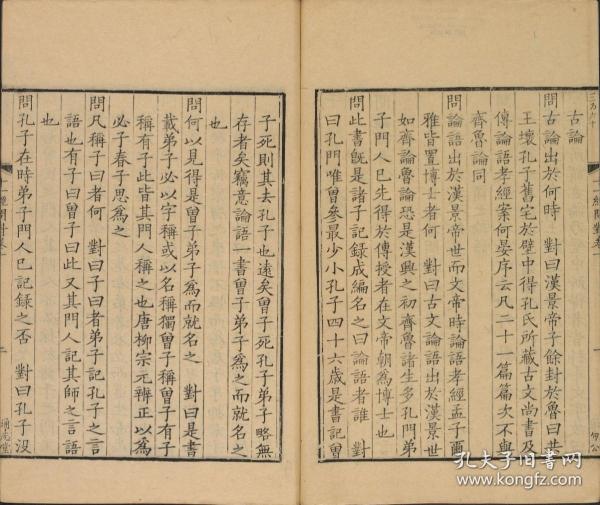 古論
問古論出於何時　對曰漢景帝子餘封於魯曰共
王壞孔子舊宅於壁中得孔氏所藏古文尚書及
傳論語孝經案何晏序云凡二十一篇篇次不與
齊魯論同
問論語出於漢景帝世而文帝時論語孝經孟子爾
雅皆置博士者何　對曰古文論語出於漢景世
如齊論魯論恐是漢興之初齊魯諸生多孔門弟
子門人已先得於傳授者在文帝朝為博士也
問此書既是諸子記錄成編名之曰論語者誰　對
曰孔門唯曾參最少小孔子四十六歲是書記曾
子死則其去孔子也遠矣曾子死孔子弟子略無
存者矣竊意論語一書曾子弟子為之而就名之
也
問何以見得是曾子弟子為而就名之　對曰是書
載弟子必以字稱或以名稱獨曾子稱曾子有子
稱有子此皆其門人稱之也唐柳宗元辨正以為
必子春子思為之
問凡稱子曰者何　對曰子曰者弟子記孔子之言
語也有子曰曾子曰此又其門人記其師之言語
也
問孔子在時弟子門人已記錄之否　對曰孔子沒
十一經問對卷一
二
通志堂
孔夫子旧書网
www.kongfz.com